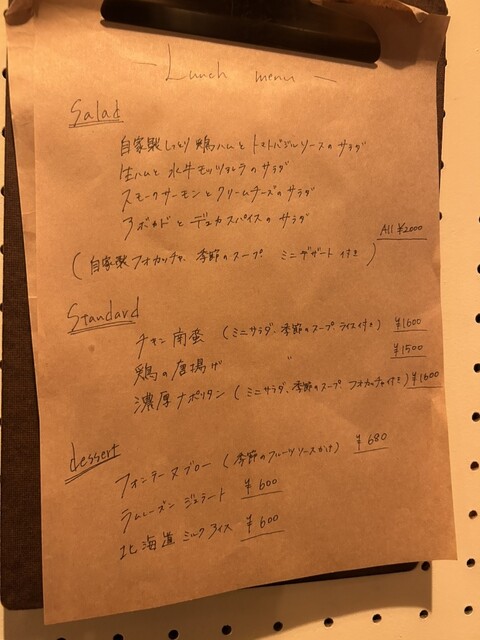 — Lunch menu —
Salad
自家製しっとり鶏ハムと トマトバジルソースのサラダ
生ハムと 水牛モッツァレラのサラダ
スモークサーモンとクリームチーズのサラダ
アボカドとデュカスパイスのサラダ
All ¥2000
(自家製フォカッチャ、季節のスープ ミニデザート 付き)
Standard
チキン南蛮 (ミニサラダ、季節のスープ ライス付き) ¥1600
鶏の唐揚げ 〃 ¥1500
濃厚ナポリタン (ミニサラダ、季節のスープ フォカッチャ付き) ¥1600
dessert
フォンテーヌブロー (季節のフルーツソースがけ) ¥680
ラムレーズン ジェラート ¥600
北海道ミルクアイス ¥600